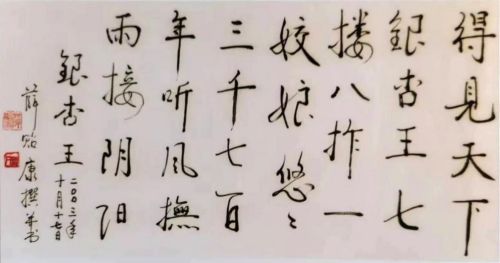 得見天下
銀杏王七
搂八拃一
姣娘悠々
三千七百
年听风撫
雨接阴阳
銀杏王
二〇〇三年
十月十七日
薛贻康撰并书